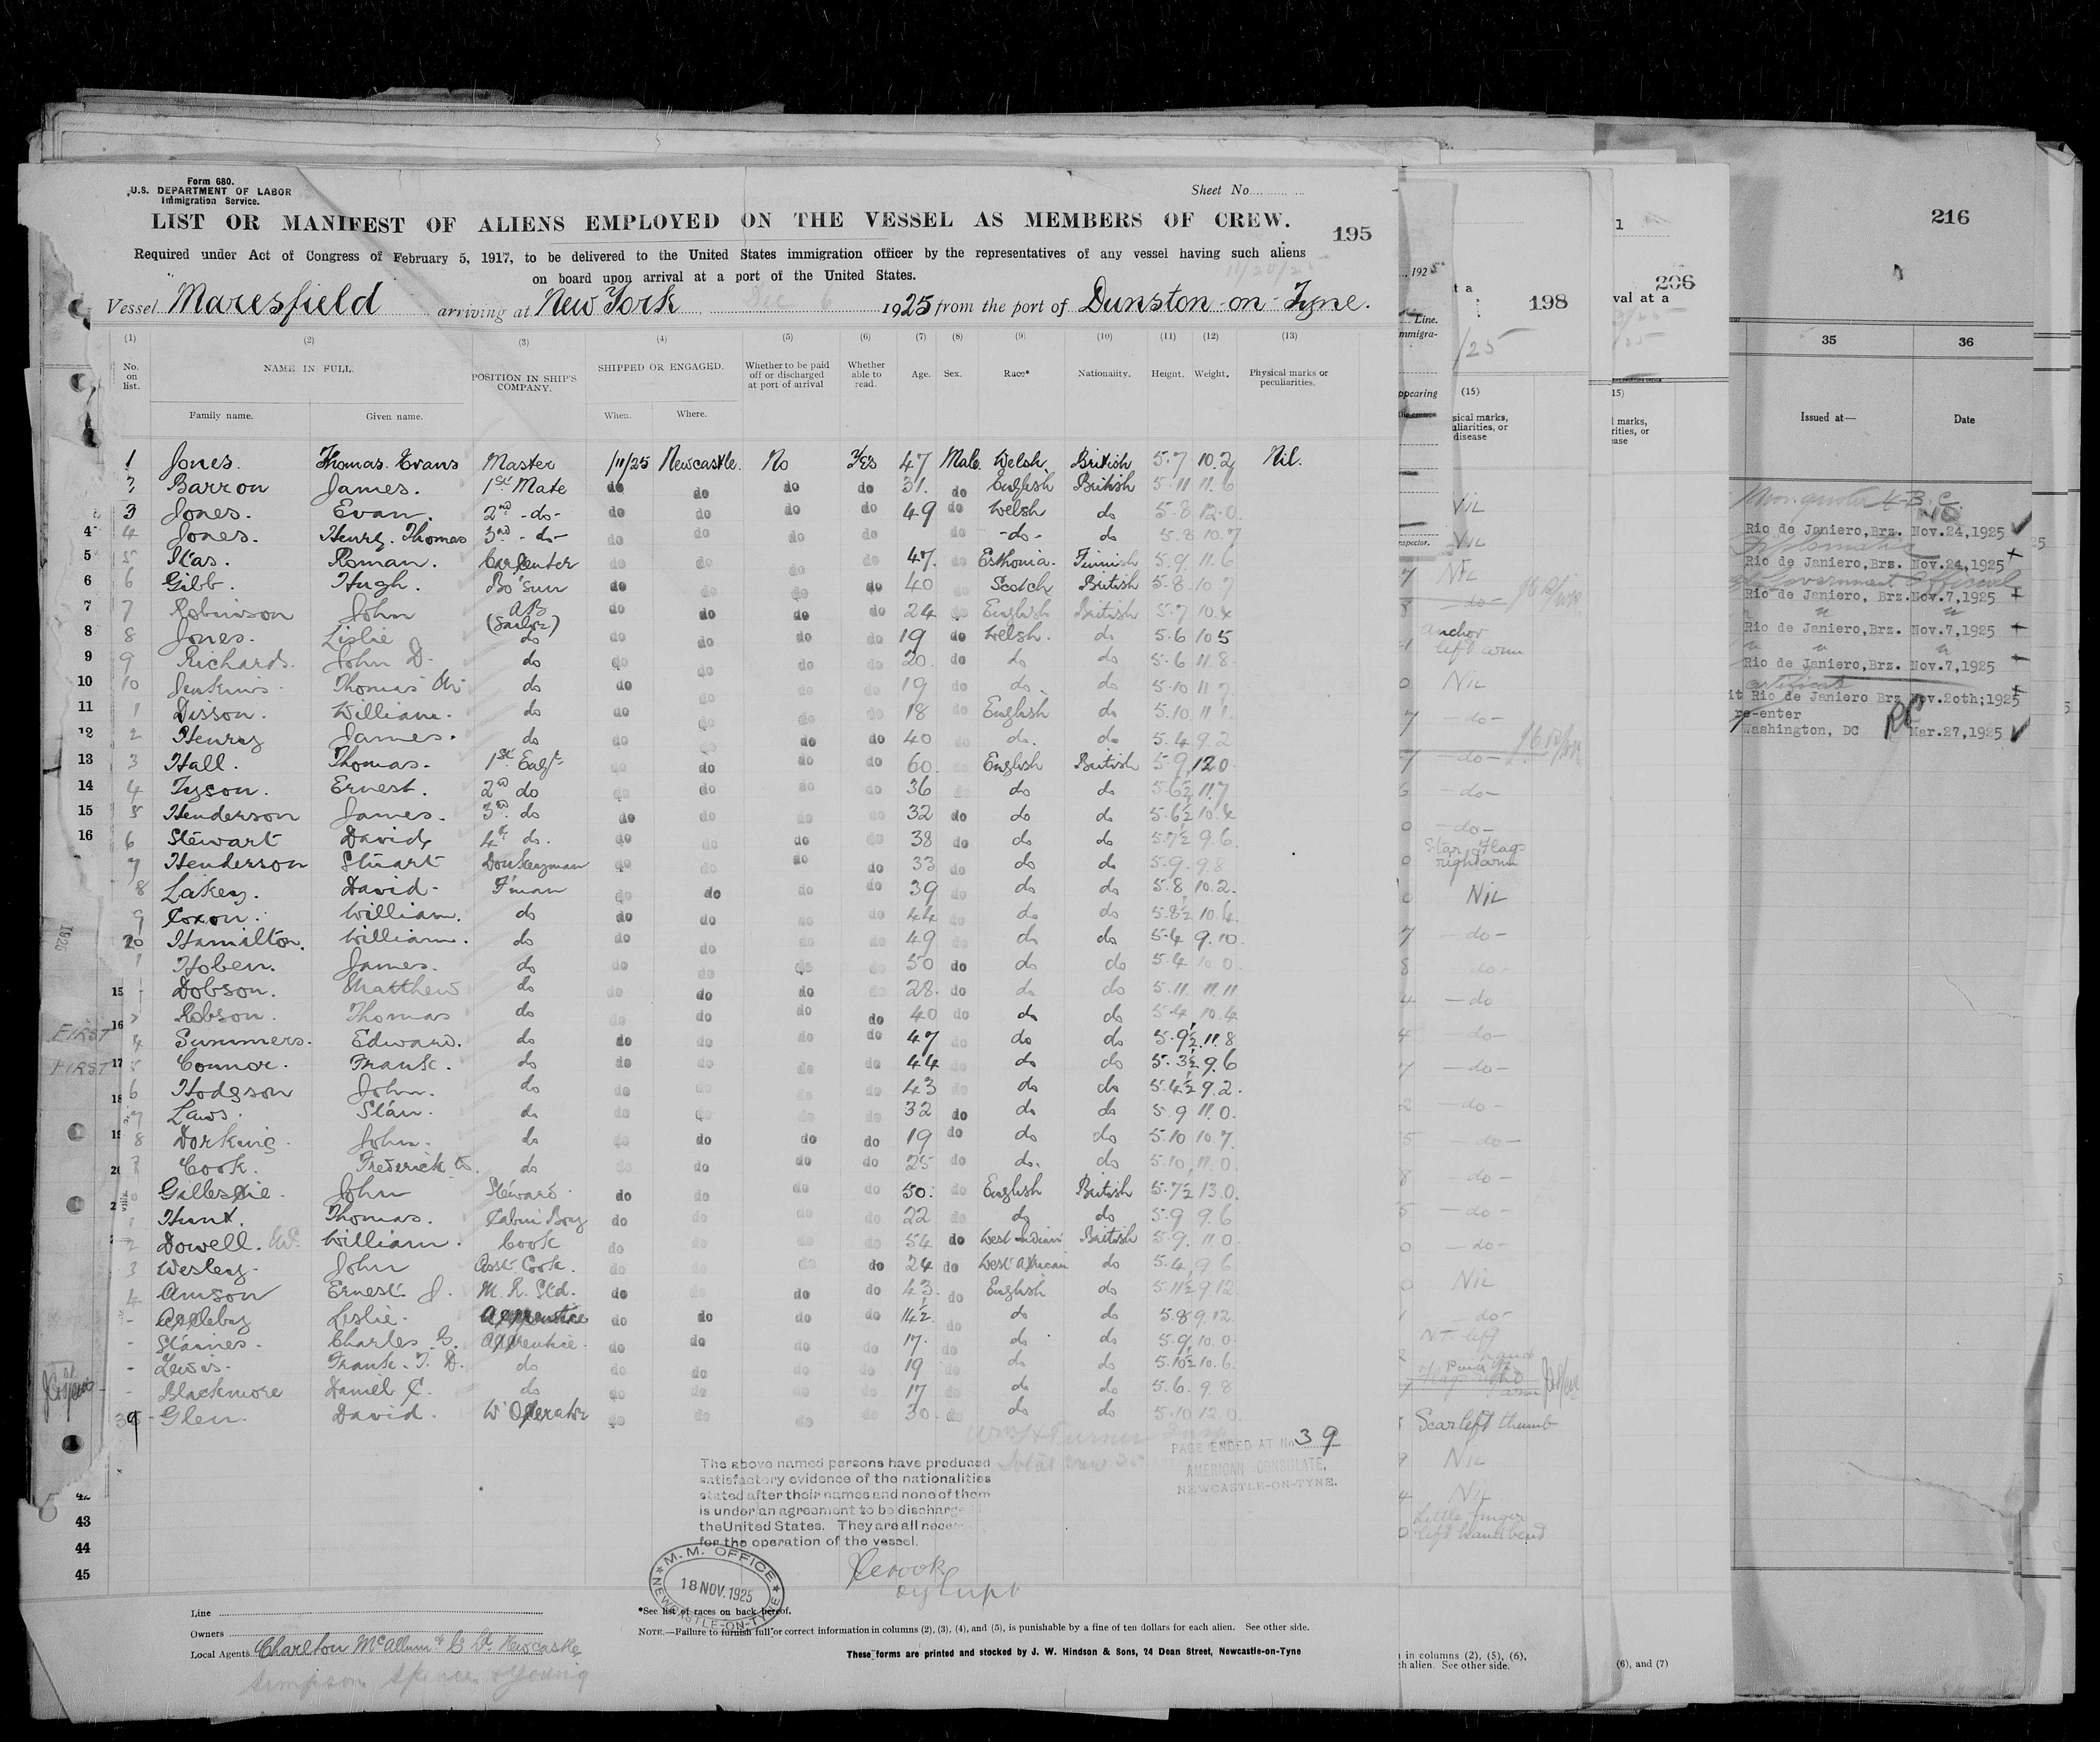 Form 680.
U.S. DEPARTMENT OF LABOR
Immigration Service.
Sheet No.
LIST OR MANIFEST OF ALIENS EMPLOYED ON THE VESSEL AS MEMBERS OF CREW.
195
Required under Act of Congress of February 5, 1917, to be delivered to the United States immigration officer by the representatives of any vessel having such aliens
on board upon arrival at a port of the United States.
Vessel Maresfield arriving at New York Dec 6 1925 from the port of Dunston-on-Tyne.
(1) (2) (3) (4) (5) (6) (7) (8) (9) (10) (11) (12) (13)
No. on list. NAME IN FULL. POSITION IN SHIP'S COMPANY. SHIPPED OR ENGAGED. Whether to be paid off or discharged at port of arrival Whether able to read. Age. Sex. Race* Nationality. Height. Weight. Physical marks or peculiarities.
Family name. Given name. When. Where.
1 Jones. Thomas. Evans Master /11/25 Newcastle. No Yes 47 Male Welsh. British 5.7 10.2 Nil.
2 Barron James. 1st Mate do do do do 31. do English British 5.11 11.6
3 Jones. Evan. 2nd -do- do do do do 49 do Welsh do 5.8 12.0
4 Jones. Henry. Thomas 3rd -do- do do do do do -do- do 5.8 10.7
5 Roman. Carpenter do do do do 47. do Esthonia. Finnish 5.9 11.6
6 Gibb. Hugh. Bo'sun do do do do 40 do Scotch British 5.8 10.7
7 Robinson John AB (Sailor) do do do do 24 do English British 5.7 10.4
8 Jones. Leslie do do do do do 19 do Welsh. do 5.6 10.5
9 Richards. John D. do do do do do 20 do do do 5.6 11.8
10 Jenkins. Thomas Wm do do do do do 19 do do. do 5.10 11.7
1 Disson. William. do do do do do 18 do English do 5.10 11.1
2 Henry James. do do do do do 40 do do. do 5.4 9.2
3 Hall. Thomas. 1st Eng. do do do do 60. do English British 5.9 12.0
4 Tyson. Ernest. 2nd do do do do do 36 do do do 5.6½ 11.7
5 Henderson James. 3rd. do do do do do 32 do do do 5.6½ 10.4
6 Stewart David 4th do. do do do do 38 do do do 5.7½ 9.6
7 Henderson Stuart Donkeyman do do do do 33 do do do 5.9 9.8
8 Lakey. David- F'man do do do do 39 do do do 5.8 10.2
9 Coxon. William. do do do do do 44 do do do 5.8½ 10.4
20 Hamilton. William. do do do do do 49 do do do 5.4 9.10
1 Hoben. James. do do do do do 50 do do do 5.4 10 0
Dobson. Matthew do do do do do 28. do do do 5.11 11.11
Robson. Thomas do do do do do 40 do do do 5.4 10.4
4 Summers. Edward. do do do do do 47 do do do 5.9½ 11.8
5 Connor. Frank. do do do do do 44 do do do 5.3½ 9.6
6 Hodgson John. do do do do do 43 do do do 5.4½ 9.2
7 Laws. Stan. do do do do do 32 do do do 5.9 11.0
8 Dorking. John. do do do do do 19 do do do 5.10 10.7
Cook. Frederick do do do do do 25 do do. do 5.10 11.0
Gillespie. John Steward do do do do 50. do English British 5.7½ 13.0
1 Hunt. Thomas. Cabin Boy do do do do 22 do do do 5.9 9.6
2 Dowell. William. Cook do do do do 54 do West Indian British 5.9 11.0
3 Wesley. John Asst. Cook. do do do do 24 do West African do 5.4 9.6
4 Amson Ernest. J. M.R. Std. do do do do 43. do English do 5.11½ 9.12
- Appleby Leslie. Apprentice do do do do 14½ do do do 5.8 9.12
- Staines. Charles. G. Apprentice. do do do do 17. do do do 5.9 10.0
- Lewis. Frank. T. D. do do do do do 19 do do do 5.10½ 10.6
- Blackmore Daniel C. do do do do do 17 do do do 5.6 9.8
39 Glen. David. W. Operator do do do do 30. do do do 5.10 12.0
PAGE ENDED AT No. 39
AMERICAN CONSULATE,
NEWCASTLE-ON-TYNE.
The above named persons have produced
satisfactory evidence of the nationalities
stated after their names and none of them
is under an agreement to be discharg
the United States. They are all nece
for the operation of the vessel.
M.M. OFFICE
18 NOV. 1925
NEWCASTLE-ON-TYNE
42
43
44
45
*See list of races on back hereof.
Line
Owners
NOTE.—Failure to furnish full or correct information in columns (2), (3), (4), and (5), is punishable by a fine of ten dollars for each alien. See other side.
Local Agents Charlton McAllum & Co Ld. Newcastle
Simpson Spence & Young
These forms are printed and stocked by J. W. Hindson & Sons, 24 Dean Street, Newcastle-on-Tyne
FIRST
FIRST
198
(15)
sical marks,
uliarities, or
disease
Nil
Nil
Nil
-do-
anchor
left arm
Nil
-do-
-do-
-do-
-do-
Star Flags
right arm
Nil
-do-
-do-
-do
-do-
-do-
-do-
-do-
-do-
-do-
-do-
Nil
-do-
Scar left thumb
Nil
Nil
Little finger
left hand bend
in columns (2), (5), (6),
ch alien. See other side.
206
val at a
15)
l marks,
rities, or
ase
(6), and (7)
216
35 36
Issued at— Date
Rio de Janiero,Brz. Nov.24,1925
Rio de Janiero,Brz. Nov.24,1925
Government Official
Rio de Janiero, Brz. Nov.7,1925
Rio de Janiero,Brz. Nov.7,1925
Rio de Janiero,Brz. Nov.7,1925
it Rio de Janiero Brz Nov.2oth;1925
re-enter
Washington, DC Mar.27,1925